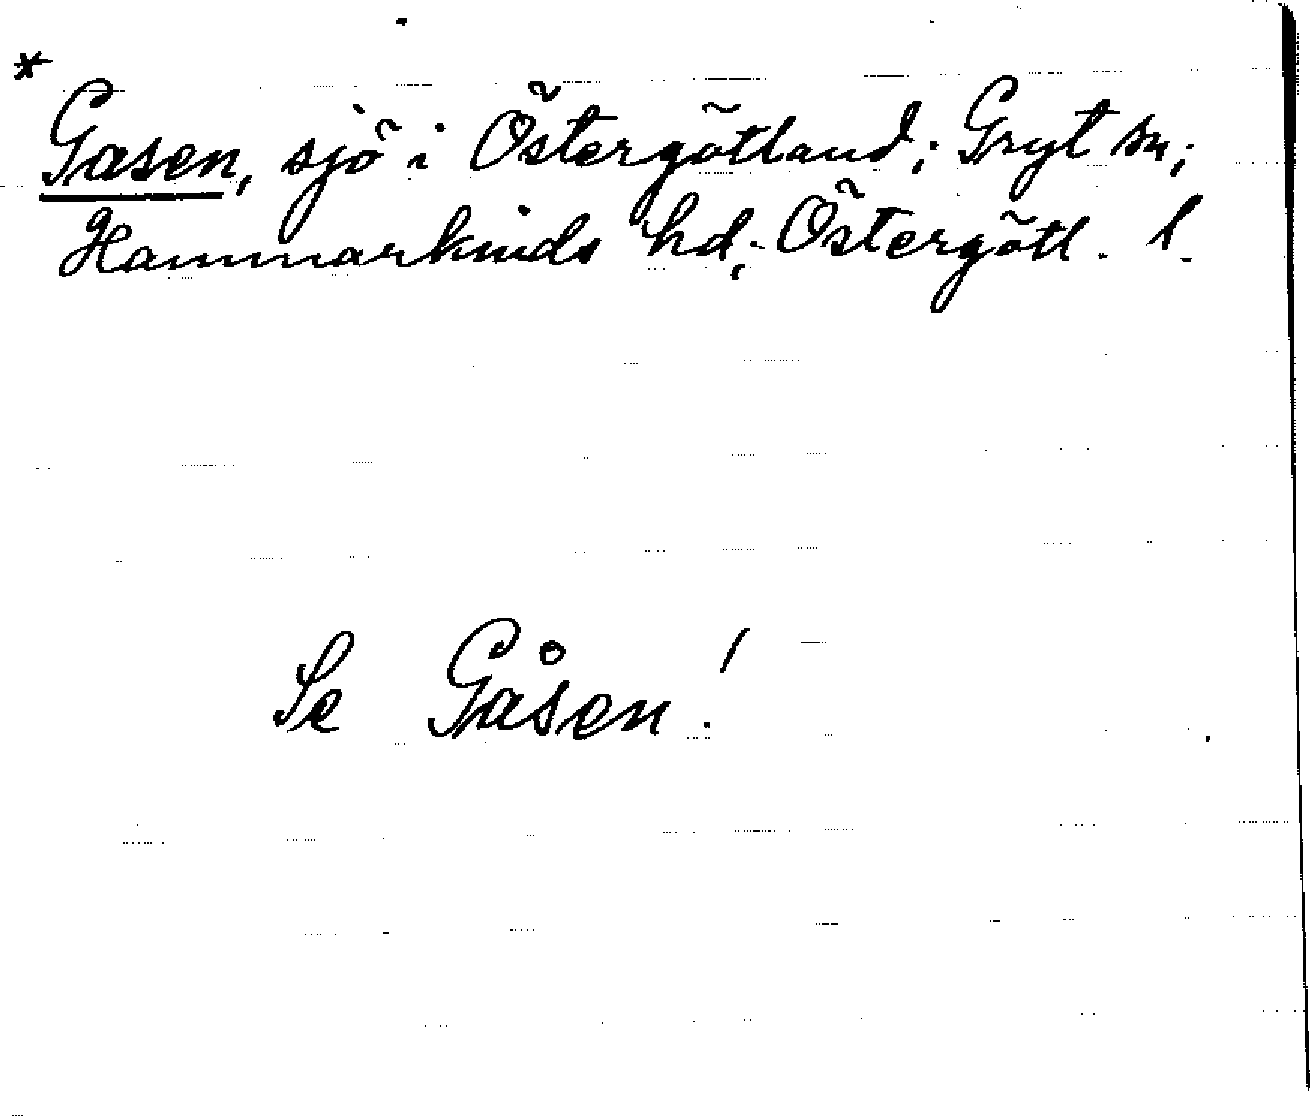 *
Gasen, sjö i Östergötland; Gryt sn;
Hammarkinds hd; Östergötl. l.
Se Gåsen!